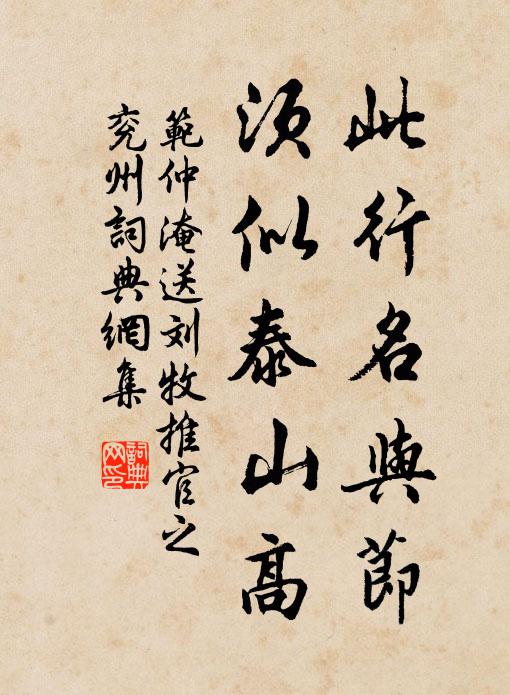 此行名與節
須似泰山高
範仲淹送刘牧推官之
兖州詞典網集
詞典
网印